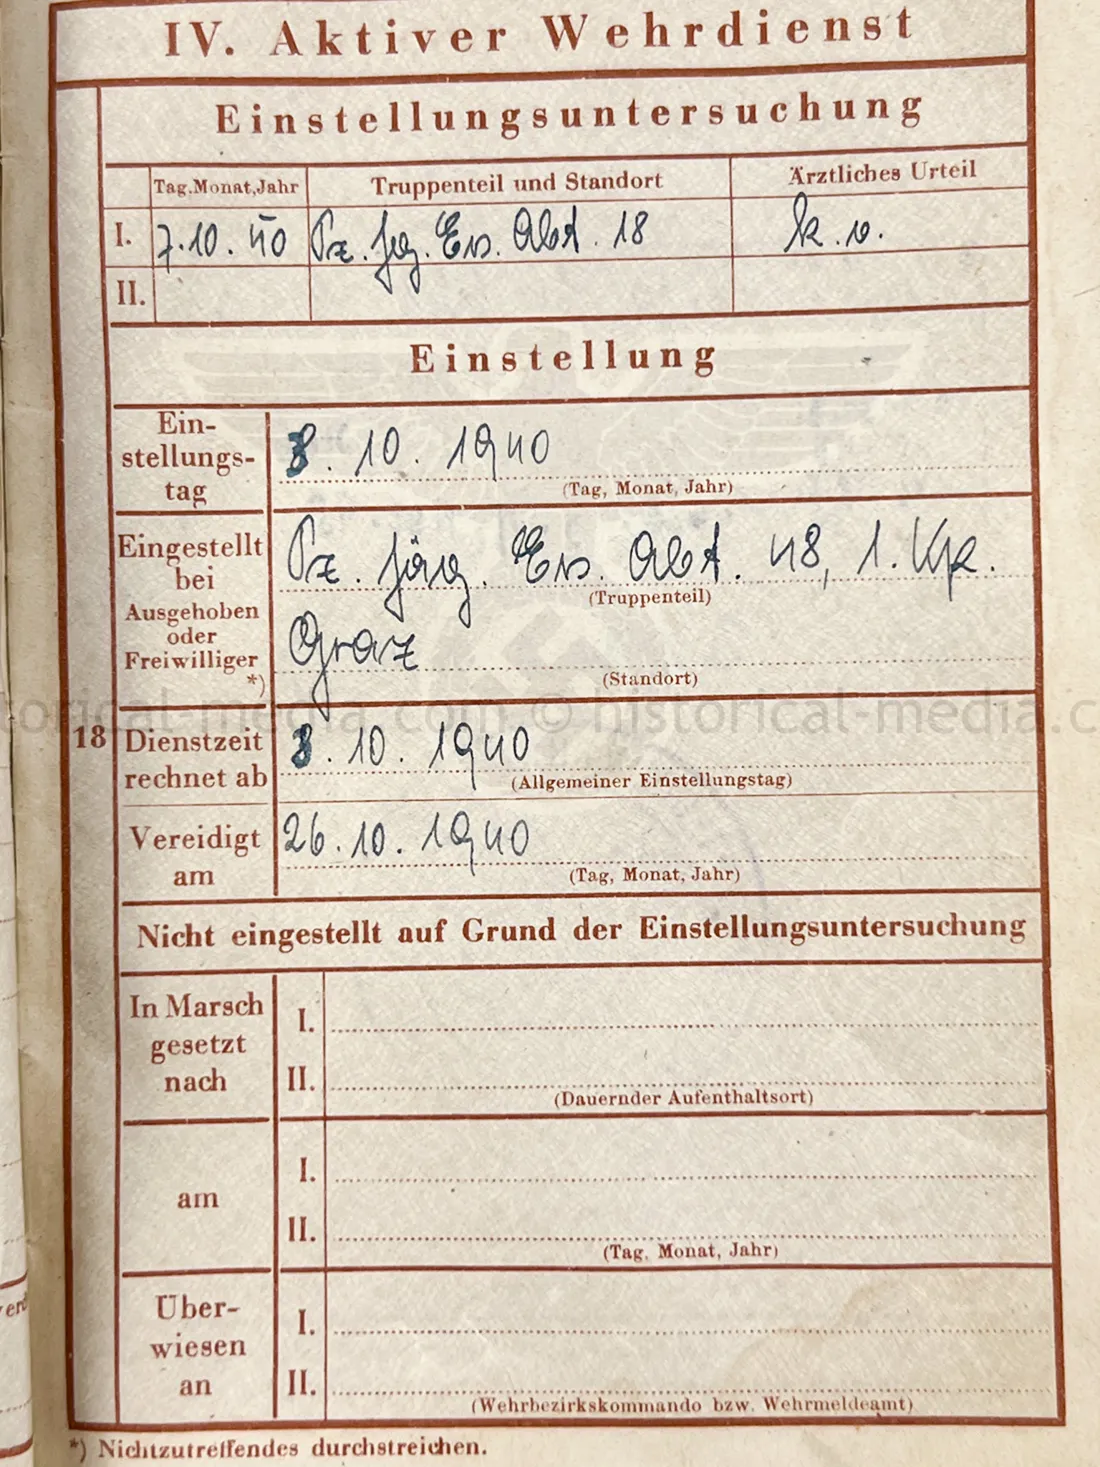 IV. Aktiver Wehrdienst
Einstellungsuntersuchung
Tag, Monat, Jahr Truppenteil und Standort Ärztliches Urteil
I. 7.10.40 Pz. Jg. Ers. Abt. 18 k.v.
II.
Einstellung
Ein-
stellungs-
tag
8.10.1940
(Tag, Monat, Jahr)
Eingestellt
bei
Ausgehoben
oder
Freiwilliger
*)
Pz. Jäg. Ers. Abt. 48, 1. Kp.
(Truppenteil)
Graz
(Standort)
historical-media.com © historical-media.c
18
Dienstzeit
rechnet ab
8.10.1940
(Allgemeiner Einstellungstag)
Vereidigt
am
26.10.1940
(Tag, Monat, Jahr)
Nicht eingestellt auf Grund der Einstellungsuntersuchung
In Marsch
gesetzt
nach
I.
II.
(Dauernder Aufenthaltsort)
am
I.
II.
(Tag, Monat, Jahr)
Über-
wiesen
an
I.
II.
(Wehrbezirkskommando bzw. Wehrmeldeamt)
*) Nichtzutreffendes durchstreichen.